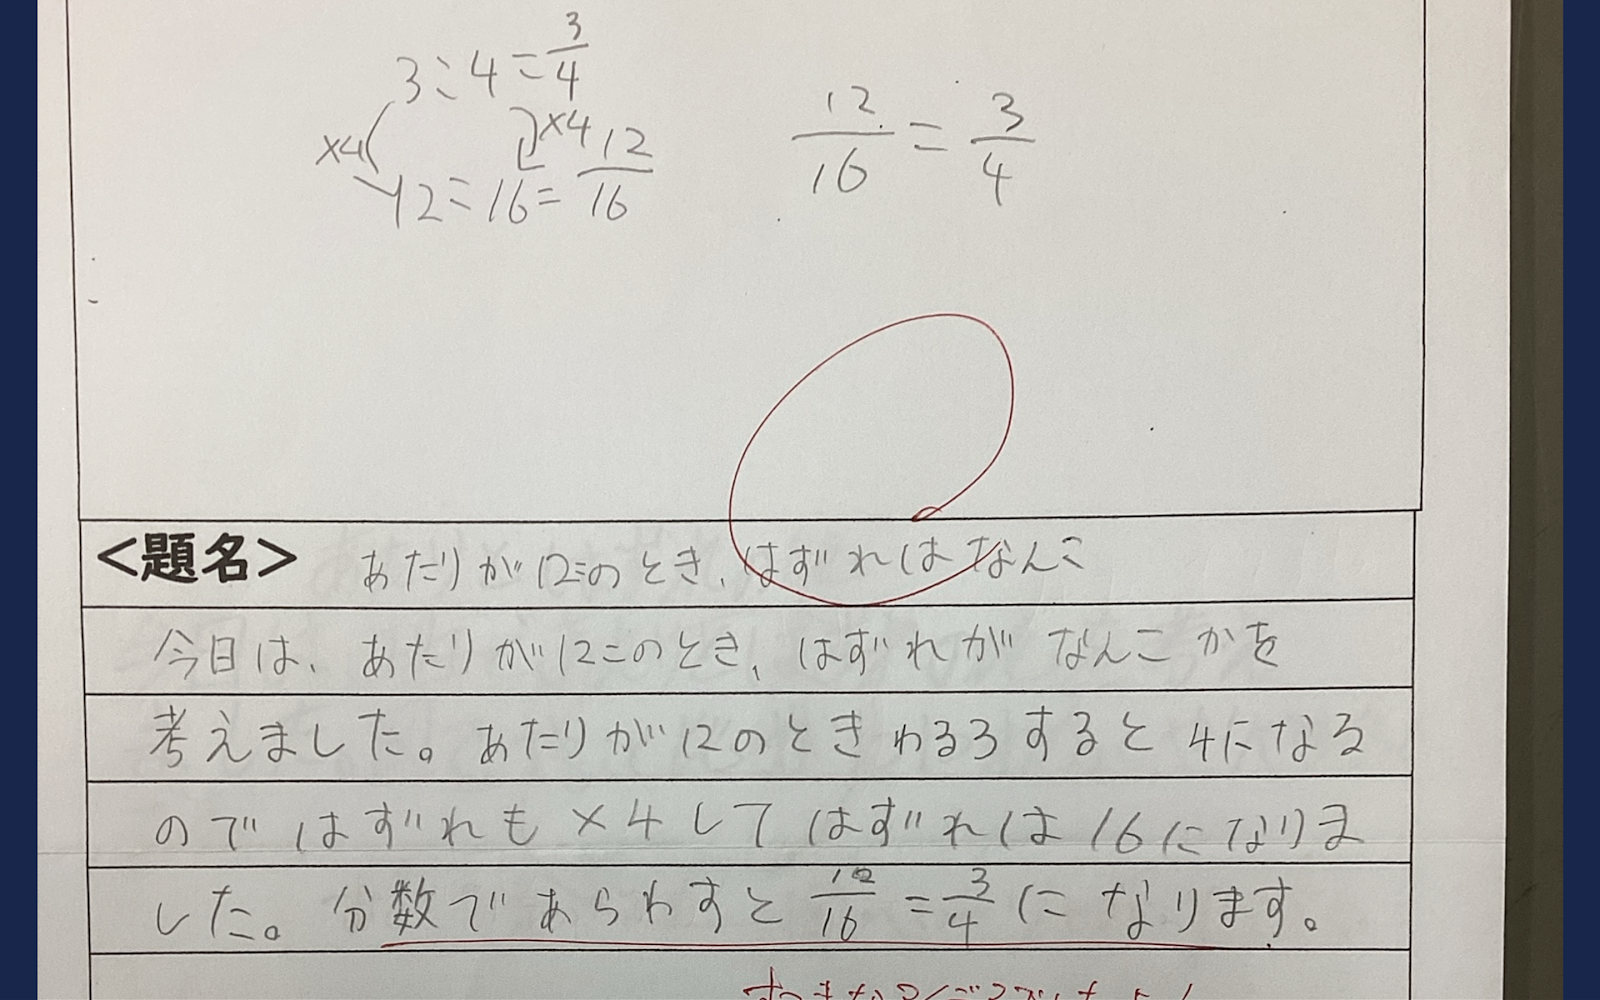 3÷4=3/4
×4 ×4
12÷16=12/16
12/16=3/4
<題名> あたりが12このとき、はずれはなんこ
今日は、あたりが12このとき、はずれがなんこかを
考えました。あたりが12のときわる3すると4になる
のではずれも×4してはずれは16になりま
した。分数であらわすと12/16=3/4になります。